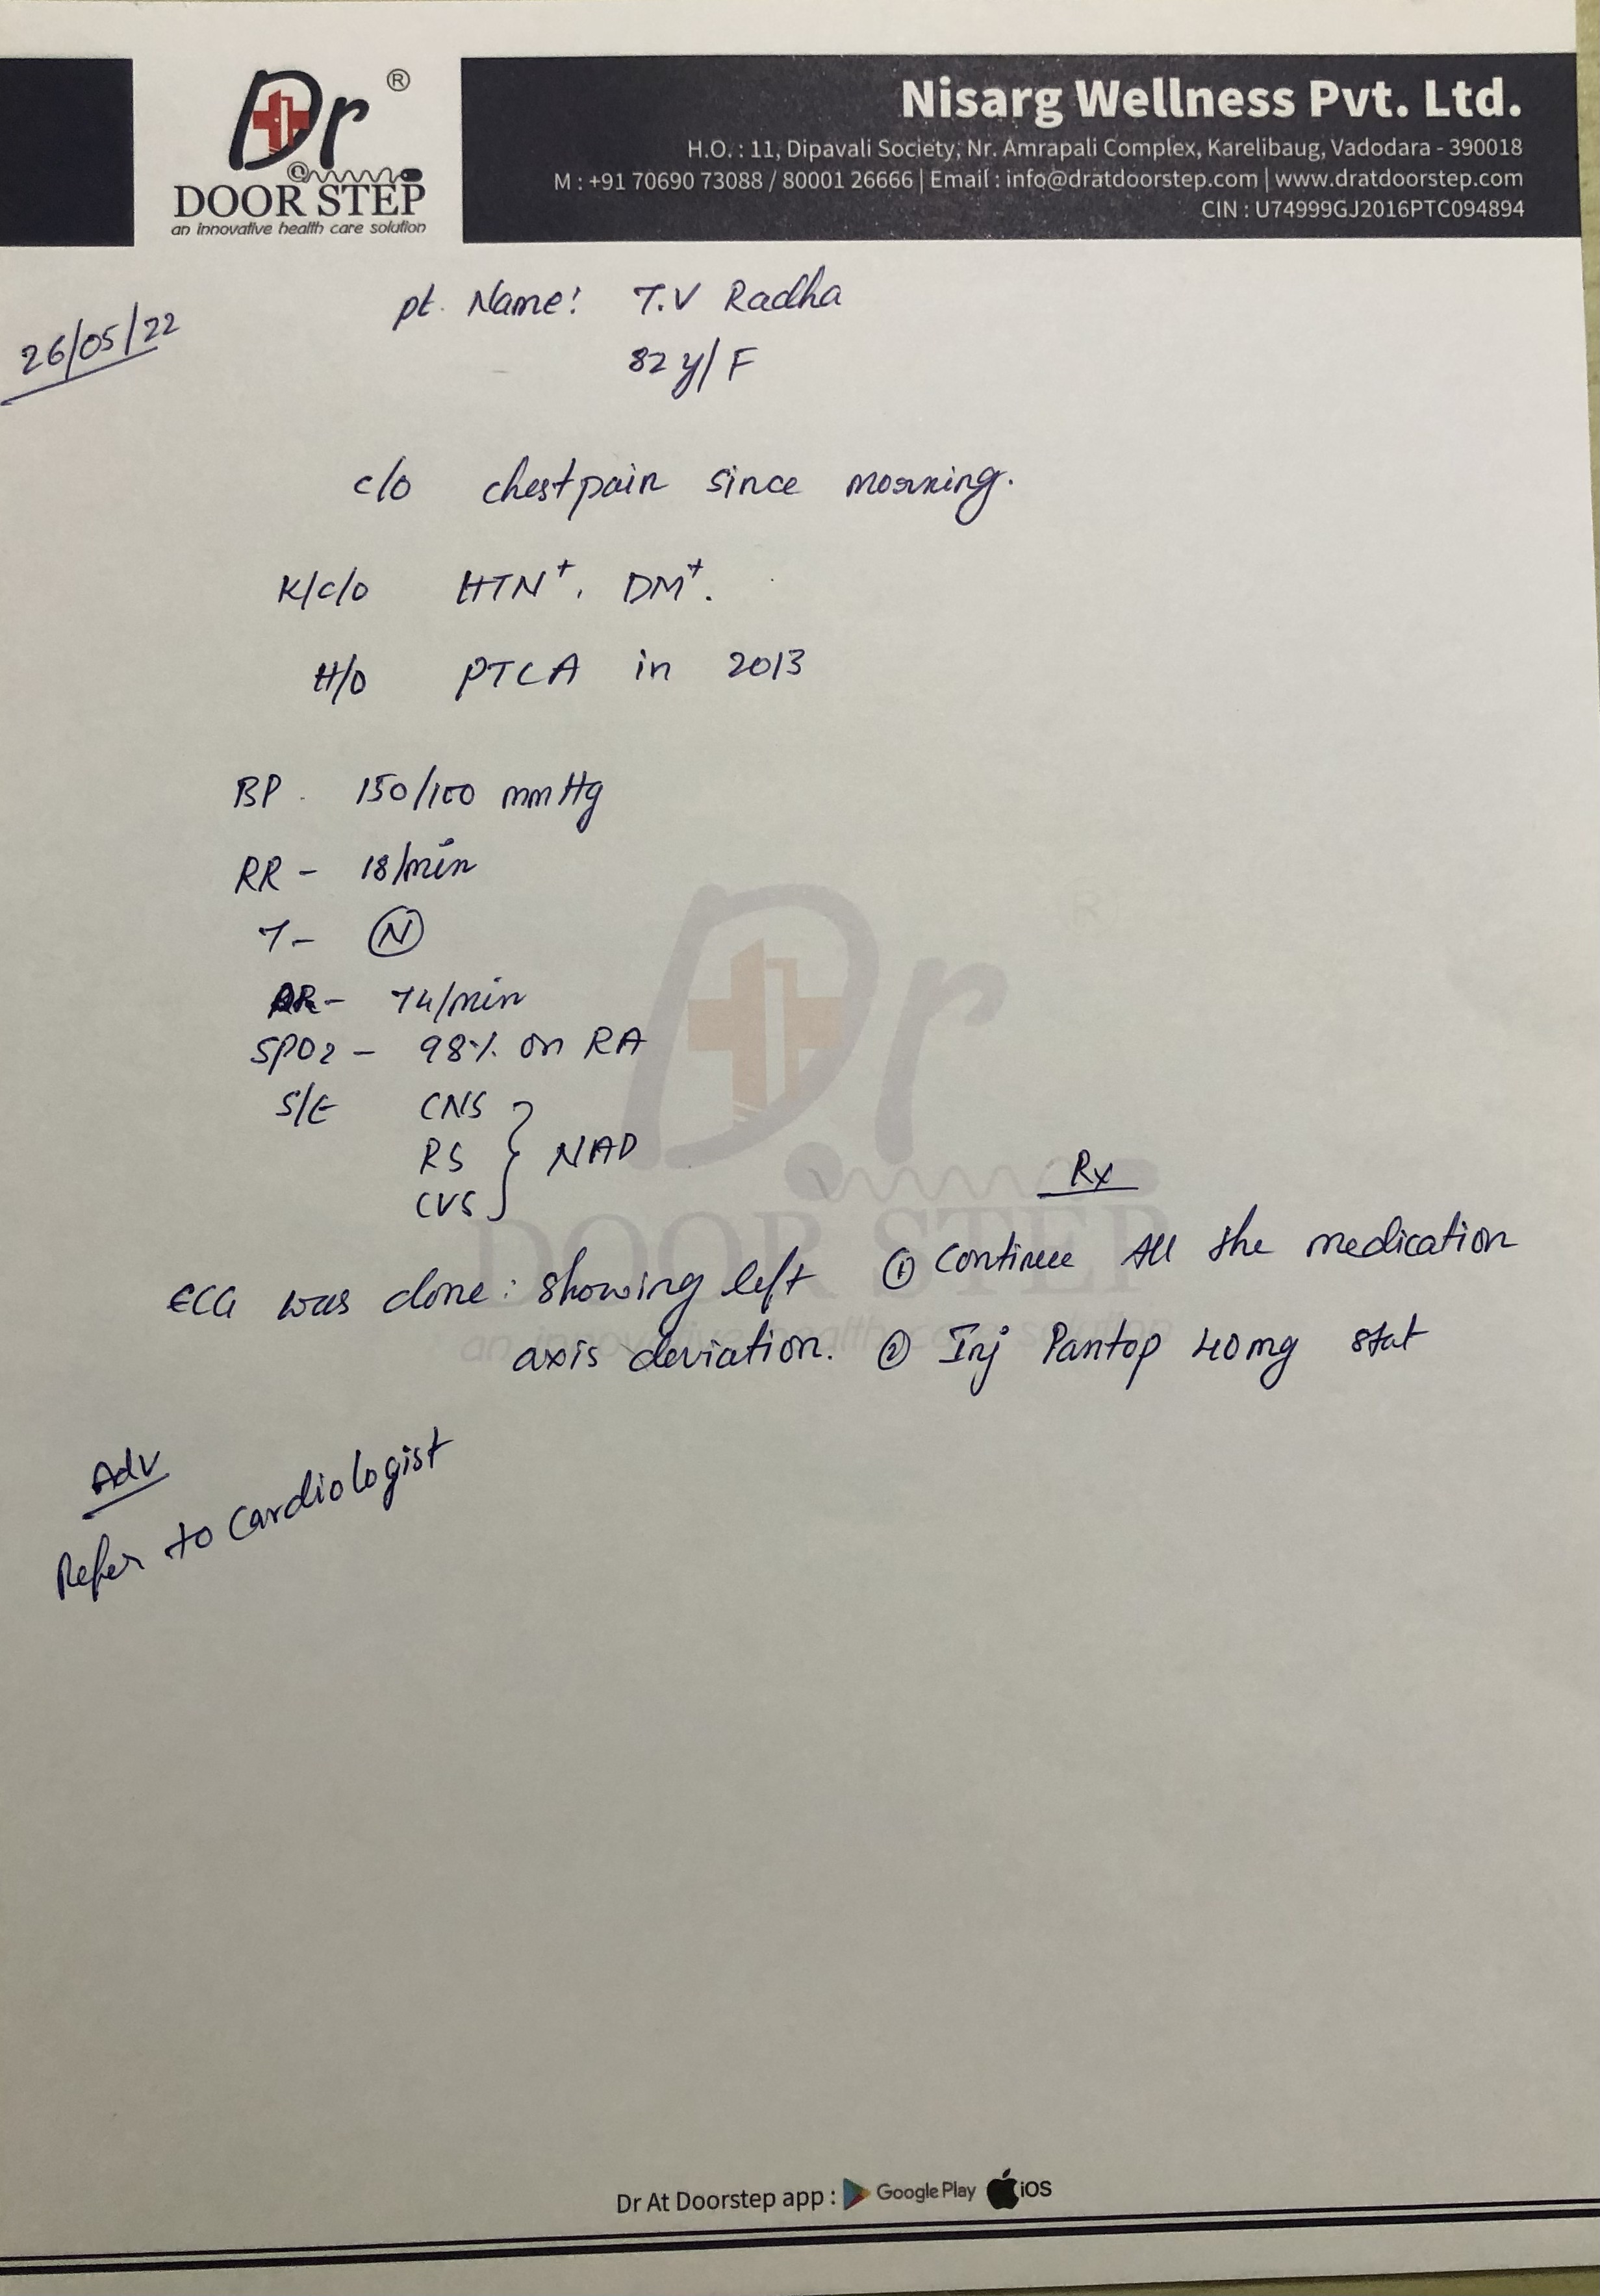 Dr ®
@
DOOR STEP
an innovative health care solution
Nisarg Wellness Pvt. Ltd.
H.O. : 11, Dipavali Society, Nr. Amrapali Complex, Karelibaug, Vadodara - 390018
M : +91 70690 73088 / 80001 26666 | Email : info@dratdoorstep.com | www.dratdoorstep.com
CIN : U74999GJ2016PTC094894
26/05/22
pt. Name: T.V Radha
82 y/F
c/o chestpain since morning.
K/c/o HTN+, DM+.
H/o PTCA in 2013
BP - 150/100 mmHg
RR - 18/min
T - N
74/min
SPO2 - 98% on RA
S/E CNS
RS } NAD
CVS
ECG was done: showing left
axis deviation.
Rx
① Continue All the medication
② Inj Pantop 40mg stat
Adv
Refer to Cardiologist
Dr
DOOR STEP
an innovative health care solution
Dr At Doorstep app : Google Play iOS